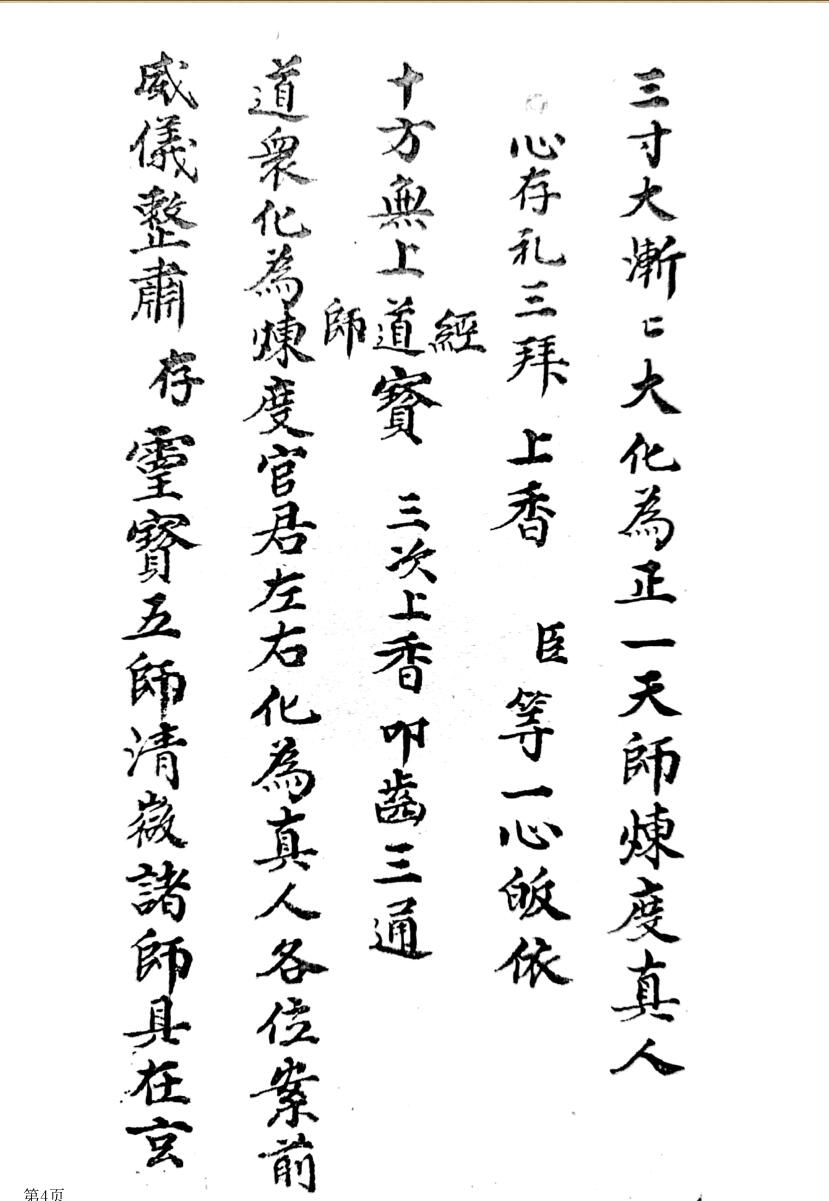 三寸大漸〻大化為正一天師煉度真人
心存礼三拜 上香 臣等一心皈依
十方無上經道師寶 三次上香 叩齒三通
道衆化為煉度官君左右化為真人各位案前
威儀整肅 存 靈寶五師清微諸師具在玄
第4页